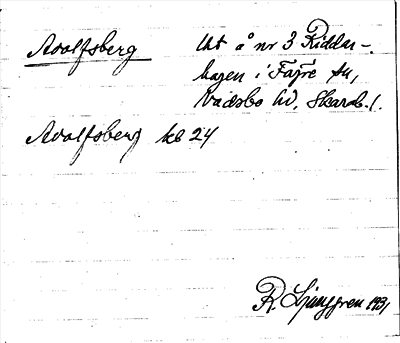 Adolfsberg
Utt å nr 3 Riddar-
hagen i Fägre sn,
Vadsbo hd, Skarab. l.
Adolfsberg kb 24
R. Ljunggren 1931